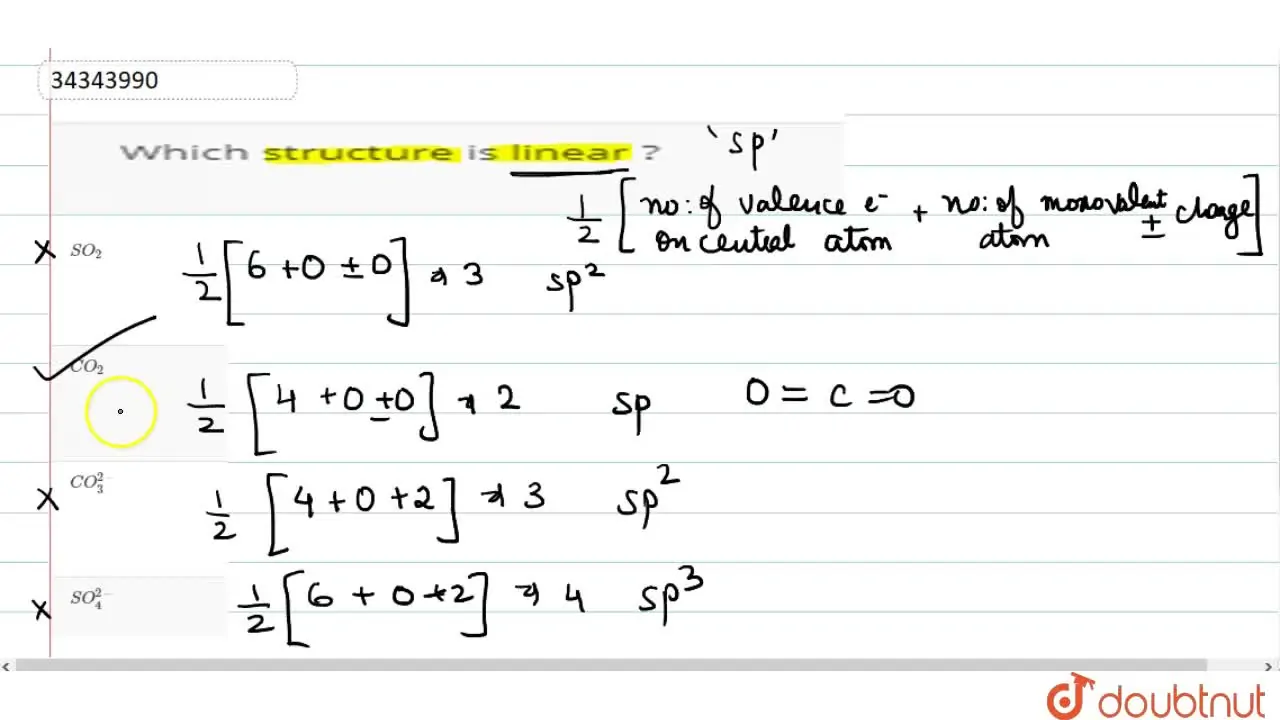 34343990
Which structure is linear ?
'sp'
1/2 [no: of valence e⁻ on central atom + no: of monovalent atom ± charge]
× SO₂ 1/2 [6 + 0 ± 0] → 3 sp²
✓ CO₂ 1/2 [4 + 0 ± 0] → 2 sp O = C = O
× CO₃²⁻ 1/2 [4 + 0 + 2] → 3 sp²
× SO₄²⁻ 1/2 [6 + 0 + 2] → 4 sp³
doubtnut